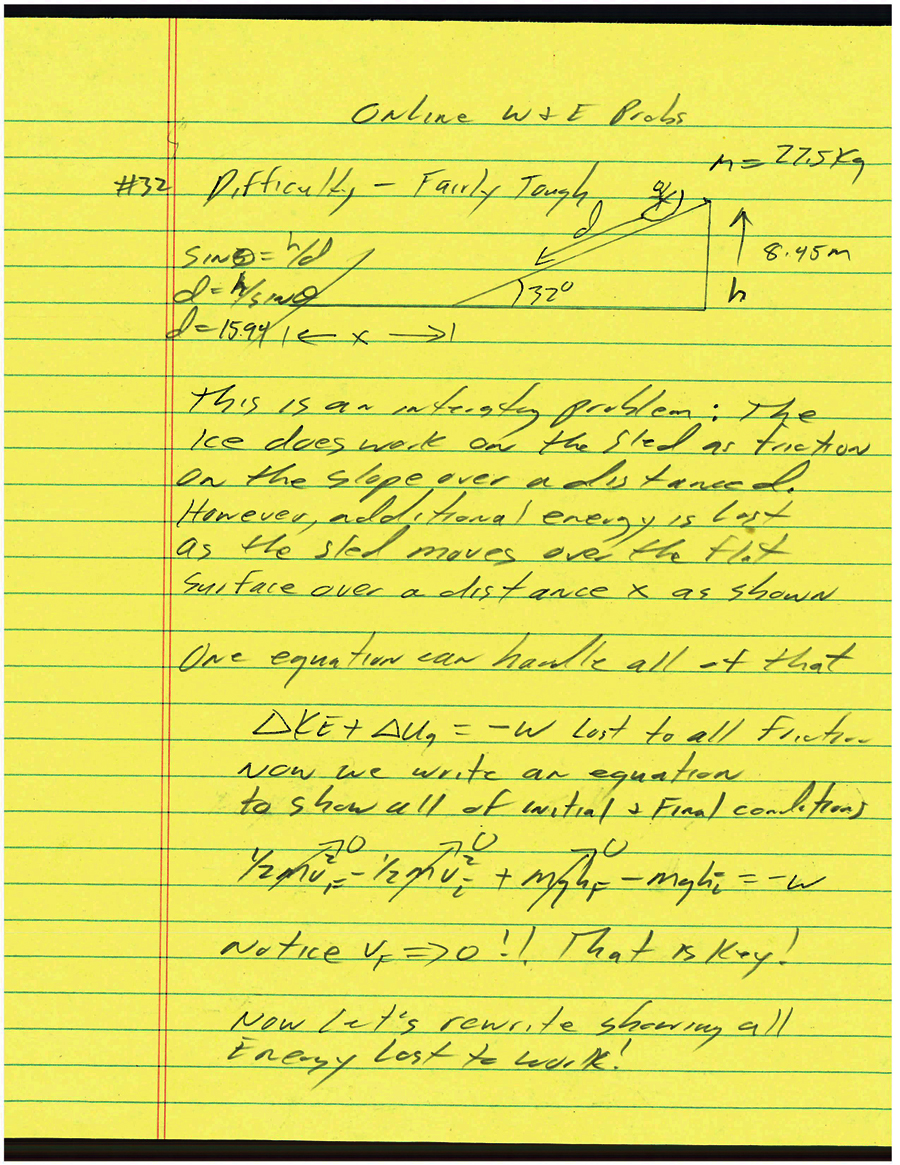 Online W & E Probs
m = 27.5 Kg
#32 Difficulty - Fairly Tough
d
8.45m
h
32°
sinθ = h/d
d = h/sinθ
d = 15.94
x
This is an intersting problem: The
Ice does work on the sled as friction
on the slope over a distance d.
However, additional energy is lost
as the sled moves over the flat
surface over a distance x as shown
One equation can handle all of that
ΔKE + ΔUg = -W Lost to all Friction
Now we write an equation
to show all of initial & Final conditions
1/2 mv²F - 1/2 mv²i + mghF - mghi = -W
0 0 0
Notice vF => 0 !! That is Key!
Now Let's rewrite showing all
Energy Lost to work!